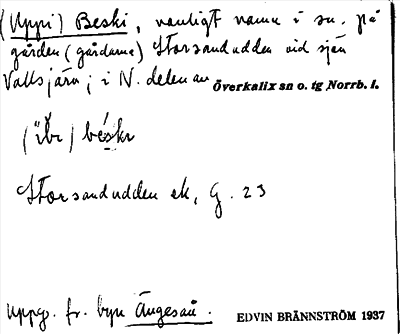 (Uppi) Beski, vanligt namn i sn. på
gården (gårdarna) Storsandudden vid sjön
Vallsjärv; i N. delen av Överkalix sn o. tg Norrb. l.
béskr
Storsandudden ek, G. 23
Uppg. fr. byn Ängeså.
EDVIN BRÄNNSTRÖM 1937